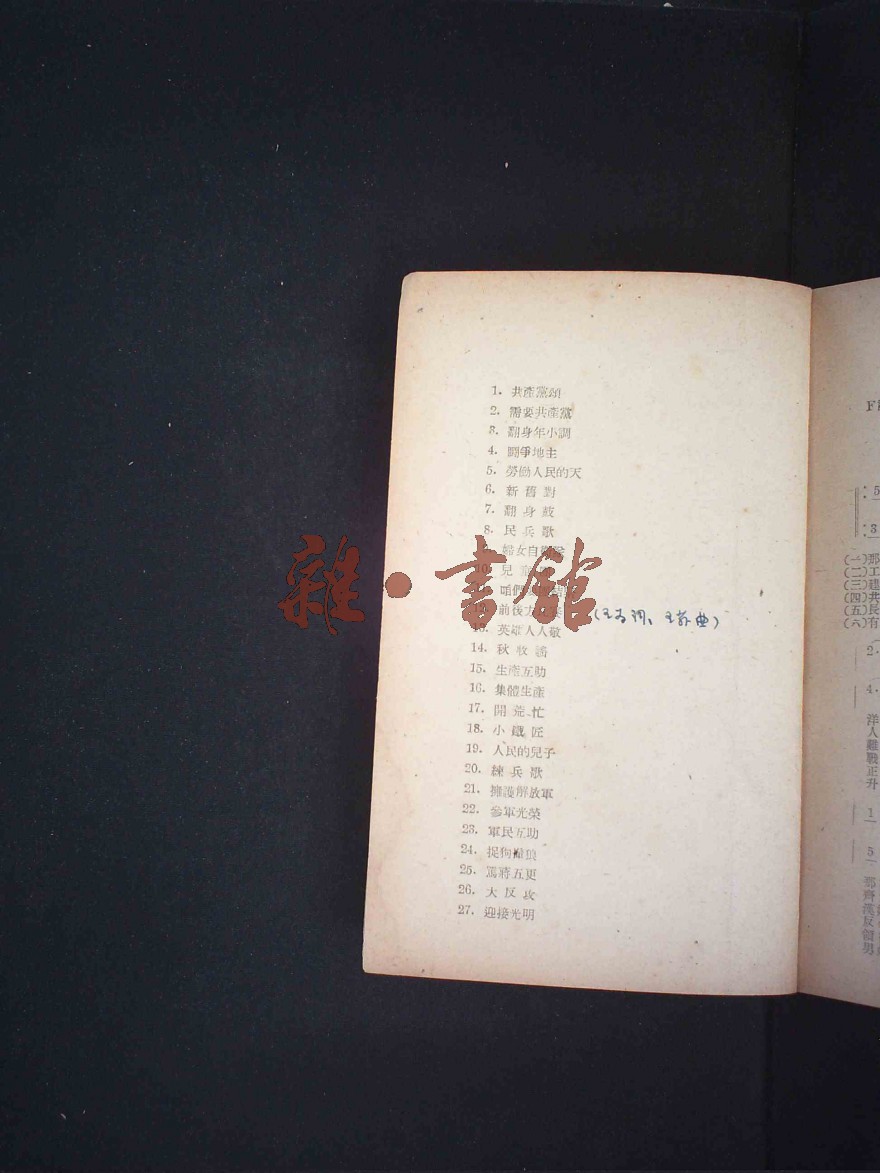 1. 共產黨頌
2. 需要共產黨
3. 翻身年小調
4. 鬪爭地主
5. 勞働人民的天
6. 新舊對
7. 翻身鼓
8. 民兵歌
婦女自
10. 兒
咱們
前後方
13. 英雄人人敬
14. 秋收謠
15. 生產互助
16. 集體生產
17. 開荒忙
18. 小鐵匠
19. 人民的兒子
20. 練兵歌
21. 擁護解放軍
22. 參軍光榮
23. 軍民互助
24. 捉狗
25. 罵蔣五更
26. 大反攻
27. 迎接光明
雜·書館
F
5
3
(一)鄧
(二)工
(三)
(四)共
(五)民
(六)有
2·
4·
洋人難戰正升
1
5
鄧齊漢反領男